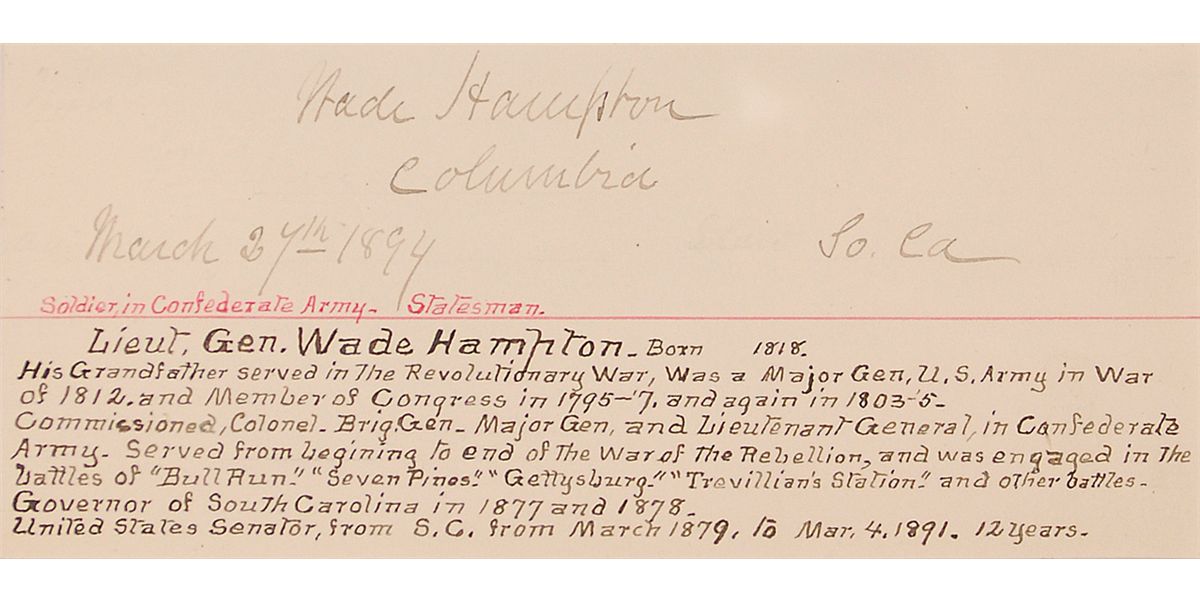 Wade Hampton
Columbia
March 27th 1894 So. Ca
Soldier, in Confederate Army - Statesman.
Lieut. Gen. Wade Hampton - Born 1818.
His Grandfather served in The Revolutionary War, Was a Major Gen, U.S. Army in War
of 1812. and Member of Congress in 1795-'7. and again in 1803-5-
Commissioned, Colonel - Brig. Gen - Major Gen, and Lieutenant General, in Confederate
Army - Served from begining to end of The War of The Rebellion, and was engaged in The
battles of "Bull Run." "Seven Pines." "Gettysburg." "Trevillian's Station." and other battles -
Governor of South Carolina in 1877 and 1878 -
United States Senator, from S.C. from March 1879. to Mar. 4. 1891. 12 years -